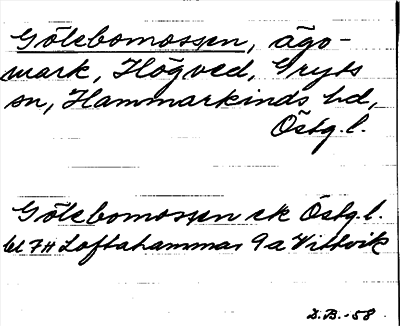 Gölebomossen, ägo-
mark, Högved, Gryts
sn, Hammarkinds hd,
Östg.l.
Gölebomossen ek Östg.l.
bl 7H Loftahammar 9a Vittvik
D.B.-58